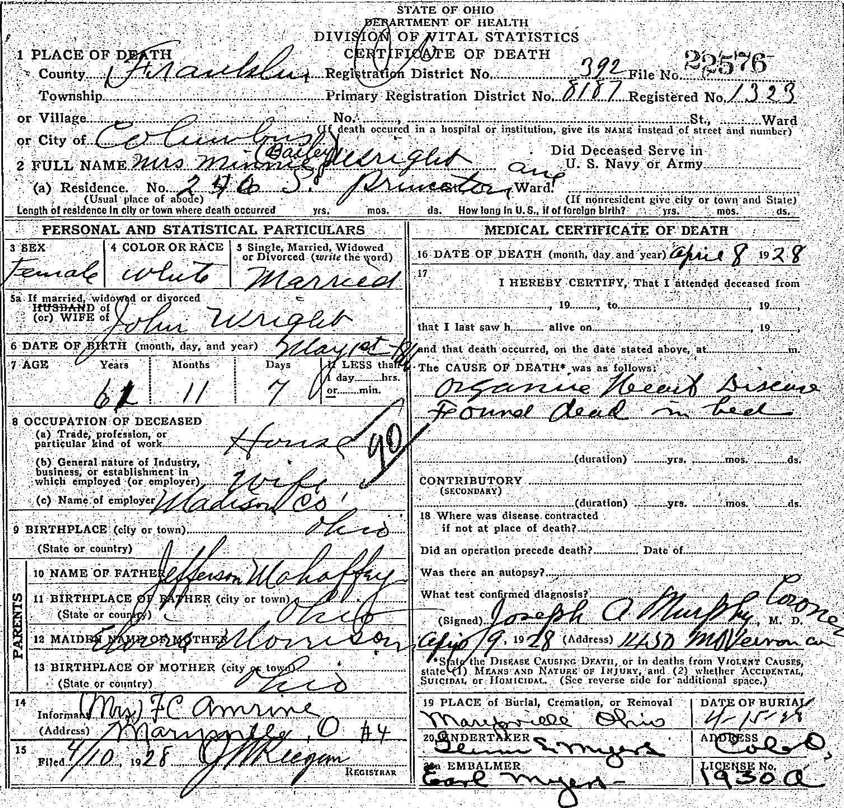 STATE OF OHIO
DEPARTMENT OF HEALTH
DIVISION OF VITAL STATISTICS
CERTIFICATE OF DEATH
1 PLACE OF DEATH
County Franklin Registration District No. 392 File No. 22576
Township Primary Registration District No. 8187 Registered No. 1323
or Village No. St., Ward
(If death occured in a hospital or institution, give its NAME instead of street and number)
or City of Columbus
Did Deceased Serve in
U. S. Navy or Army
2 FULL NAME Mrs Minnie Bailey Wright
(a) Residence. No. S. Princeton ave Ward.
(Usual place of abode) (If nonresident give city or town and State)
Length of residence in city or town where death occurred yrs. mos. ds. How long in U.S., if of foreign birth? yrs. mos. ds.
PERSONAL AND STATISTICAL PARTICULARS
3 SEX
Female
4 COLOR OR RACE
White
5 Single, Married, Widowed
or Divorced (write the word)
Married
5a If married, widowed or divorced
HUSBAND of
(or) WIFE of John Wright
6 DATE OF BIRTH (month, day, and year) May 1st
7 AGE Years Months Days If LESS than
1 day hrs.
or min.
61 11 7
8 OCCUPATION OF DECEASED
(a) Trade, profession, or
particular kind of work House
90
(b) General nature of Industry,
business, or establishment in
which employed (or employer) Wife
(c) Name of employer
Madison Co
9 BIRTHPLACE (city or town) Ohio
(State or country)
PARENTS
10 NAME OF FATHER Jefferson Mahaffey
11 BIRTHPLACE OF FATHER (city or town)
(State or country) Ohio
12 MAIDEN NAME OF MOTHER Morrison
13 BIRTHPLACE OF MOTHER (city or town)
(State or country) Ohio
14
Informant (Mrs) F C Amrine
(Address) Marysville, O #4
15
Filed 4/10, 1928
REGISTRAR
MEDICAL CERTIFICATE OF DEATH
16 DATE OF DEATH (month, day, and year) April 8 1928
17
I HEREBY CERTIFY, That I attended deceased from
, 19 , to , 19
that I last saw h alive on , 19 ,
and that death occurred, on the date stated above, at m.
The CAUSE OF DEATH* was as follows:
Organic Heart Disease
Found dead in bed
(duration) yrs. mos. ds.
CONTRIBUTORY
(SECONDARY)
(duration) yrs. mos. ds.
18 Where was disease contracted
if not at place of death?
Did an operation precede death? Date of
Was there an autopsy?
What test confirmed diagnosis?
(Signed) Joseph A. Murphy Coroner, M. D.
Apr 9, 1928 (Address) 1450 Mt Vernon av
*State the DISEASE CAUSING DEATH, or in deaths from VIOLENT CAUSES,
state (1) MEANS AND NATURE OF INJURY, and (2) whether ACCIDENTAL,
SUICIDAL, or HOMICIDAL. (See reverse side for additional space.)
19 PLACE of Burial, Cremation, or Removal
Marysville Ohio
DATE OF BURIAL
20 UNDERTAKER
Glenn S. Myers
ADDRESS
Col O.
20a EMBALMER
Earl Myers
LICENSE No.
1930 A